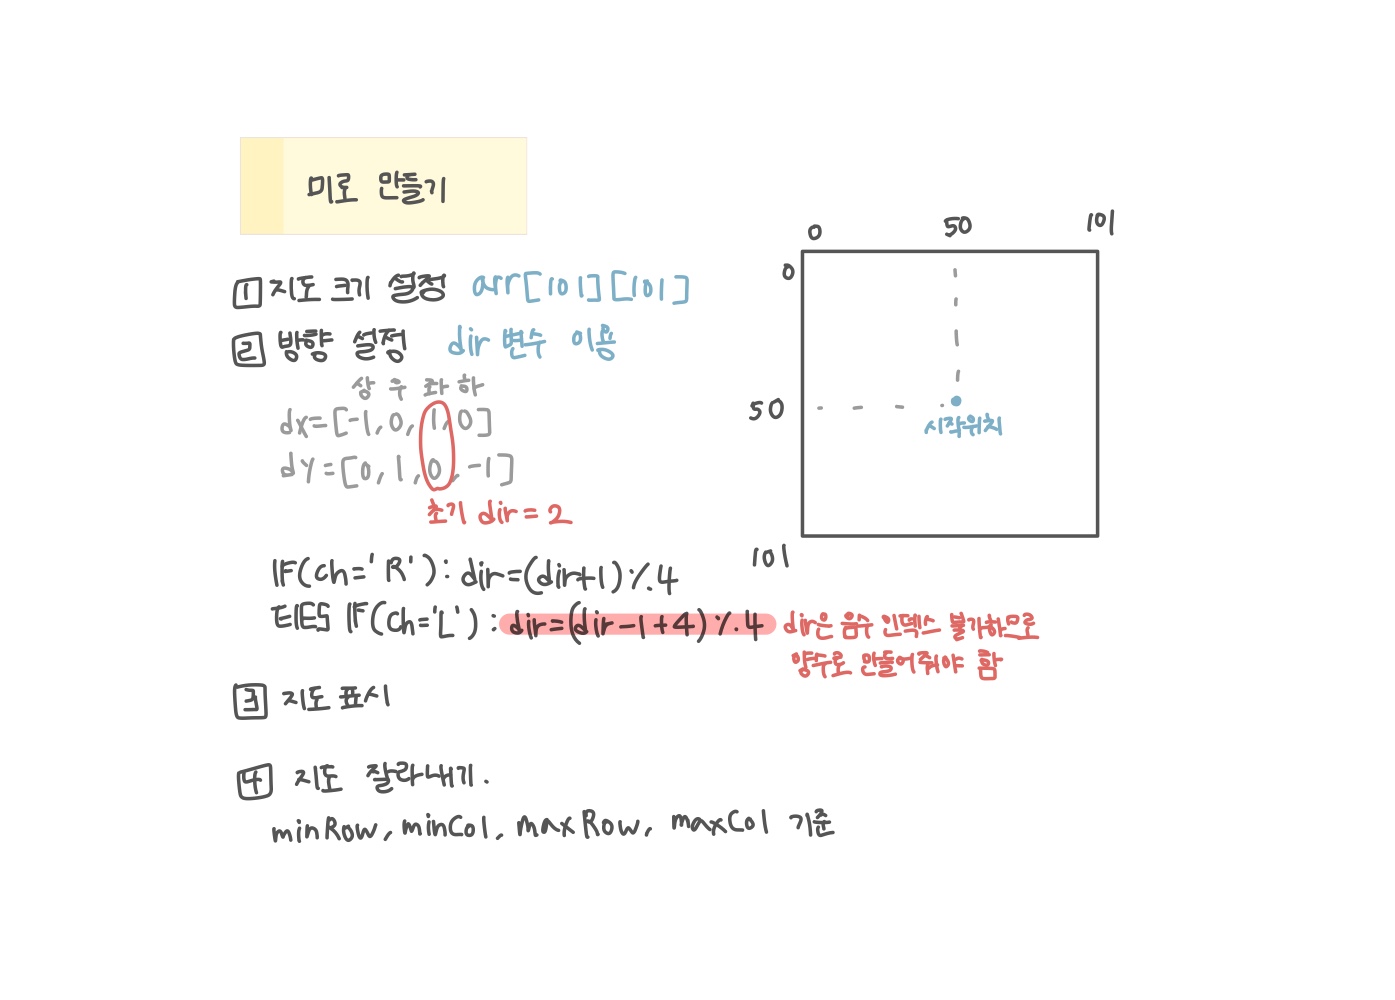 미로 만들기
1 지도 크기 설정 arr[101][101]
2 방향 설정 dir 변수 이용
상 우 좌 하
dx=[-1,0,1,0]
dy=[0,1,0,-1]
초기 dir=2
IF(ch='R'): dir=(dir+1)%4
ElES IF(ch='L'): dir=(dir-1+4)%4 dir은 음수 인덱스 불가하므로
양수로 만들어줘야 함
3 지도 표시
4 지도 잘라내기.
minRow, minCol, maxRow, maxCol 기준
0 50 101
0
50
시작위치
101